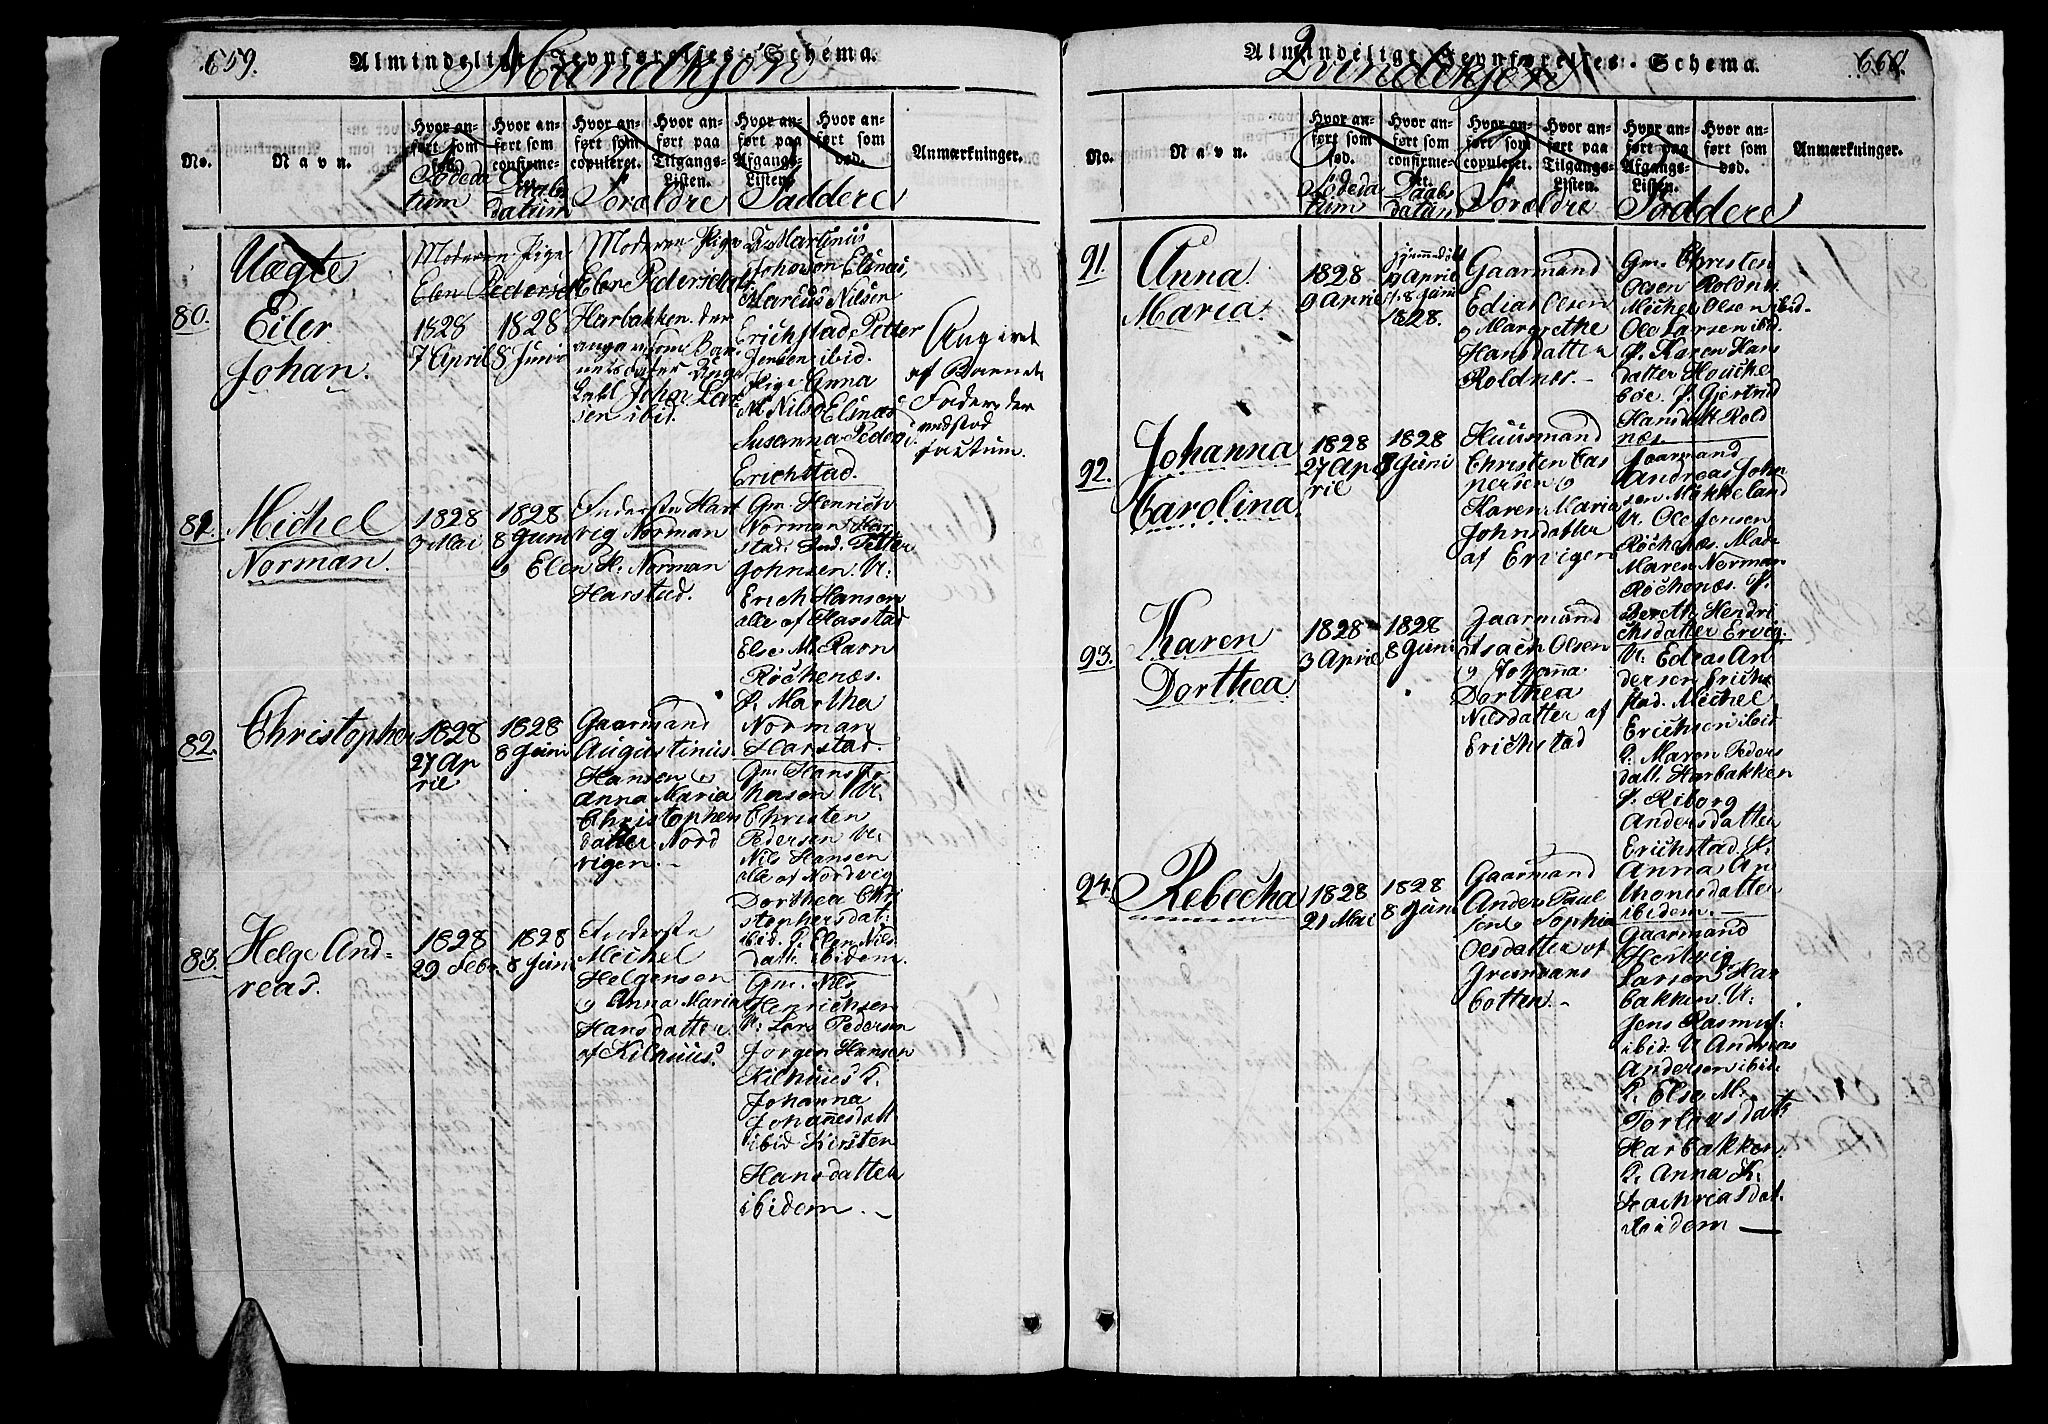 659.
Almindeligt Jevnførelses-Schema.
Mandkjøn
No.
Navn.
Hvor anført som fød.
Hvor anført som confirmeret.
Hvor anført som copuleret.
Hvor anført paa Tilgangs-Listen.
Hvor anført paa Afgangs-Listen.
Hvor anført som død.
Anmærkninger.
Födeda
tum
Daabs
datum
Foræeldre
Faddere
80.
Uægte
Eiler
Johan.
Moderen Pige
Elen Peders
1828
7 April
1828
8 Juni
Moderen Pige
Elen Pedersdatt
Harbakken. der
Johan Lar
sen ibid.
Martinus
Johnson Elines,
Marcus Nilsen
Erichstad, Petter
Jensen ibid.
Pige Anna
M. Nilsd Elines
Susanna Peders
Erichstad.
Angivet
af Barnets
Fader
factum.
81.
Michel
Norman.
1828
3 Mai
1828
8 Juni
Inderste Hart
vig Norman
og Elen H. Norman
Harstad.
Gm. Henrich
Norman Har
stad. Ind. Petter
Johnsen. U:
Erich Hansen
alle af Harstad
Else M. Ravn
Röchenæs.
P. Martha
Norman
Harstad.
82.
Christopher
1828
27 Ap
ril
1828
8 Juni
Gaarmand
Augustinus
Hansen og
Anna Maria
Christophers
datter Nord
vigen.
Gm. Hans Jo
hnsen U:
Christen
Pedersen U:
Nils Hansen
alle af Nordvig
Dorthea Chri
stophersdat:
ibid. P. Elen Nils
datt. ibidem.
83.
Helge And-
reas.
1828
29 Febr.
1828
8 Juni
Inderste
Michel
Helgensen
og Anna Maria
Hansdatter
af Kilhuus
Gm. Nils
Henrichsen
U: Lars Pedersen
Jørgen Hansen
Kilhuus K.
Johanna
Johannesdatt
ibid Kirsten
Hansdatter
ibidem.
660.
Almindeligt Jevnførelses-Schema.
Qvindekjøn
No.
Navn.
Hvor anført som fød.
Hvor anført som confirmeret.
Hvor anført som copuleret.
Hvor anført paa Tilgangs-Listen.
Hvor anført paa Afgangs-Listen.
Hvor anført som død.
Anmærkninger.
Födeda
tum
Daabs
datum
Foræeldre
Faddere
91.
Anna
Maria.
1828
9 April
hjemmedöbt
9 April
8 Juni
1828.
Gaarmand
Edias Olsen
og Margrethe
Hansdatter
Roldnes.
Gm. Christen
Olsen Roldnæs
Michel Olsen ibid.
Ole Larsen ibid.
P. Karen Hans
datter
P. Gjertrud
Hansdatt Rold
næs
92.
Johanna
Carolina.
1828
27 Ap
ril
1828
8 Juni
Huusmand
Christen Cas
persen og
Karen Maria
Johnsdatter
af Ervigen
Gaarmand
Andreas John
sen Mikkeland
U. Ole Jensen
Röchenæs. Mad
Maren Norman
Röchenæs. P.
Berethe Hendri
chsdatter Ervig.
93.
Karen
Dorthea.
1828
3 April
1828
8 Juni
Gaarmand
Isach Olsen
og Johanna
Dorthea
Nilsdatter af
Erichstad
U: Edias An
dersen Erich
stad. Michel
Erichsen ibid
P. Maren Peders
datt. Harbakken
P. Riborg
Andersdatter
Erichstad. K.
Anna An
thonisdatter
ibidem.
94.
Rebecha
1828
21 Mai
1828
8 Juni
Gaarmand
Anders Paul
sen og Sophia
Olsdatter af
Grunvans
botten.
Gaarmand
Hertvig
Larsen Har
bakken U:
Jens Rasmus:
ibid. U Andreas
Andersen ibid.
K. Else M.
Torlavsdatt
Harbakken.
K. Anna K.
Zachriasdat.
ibidem